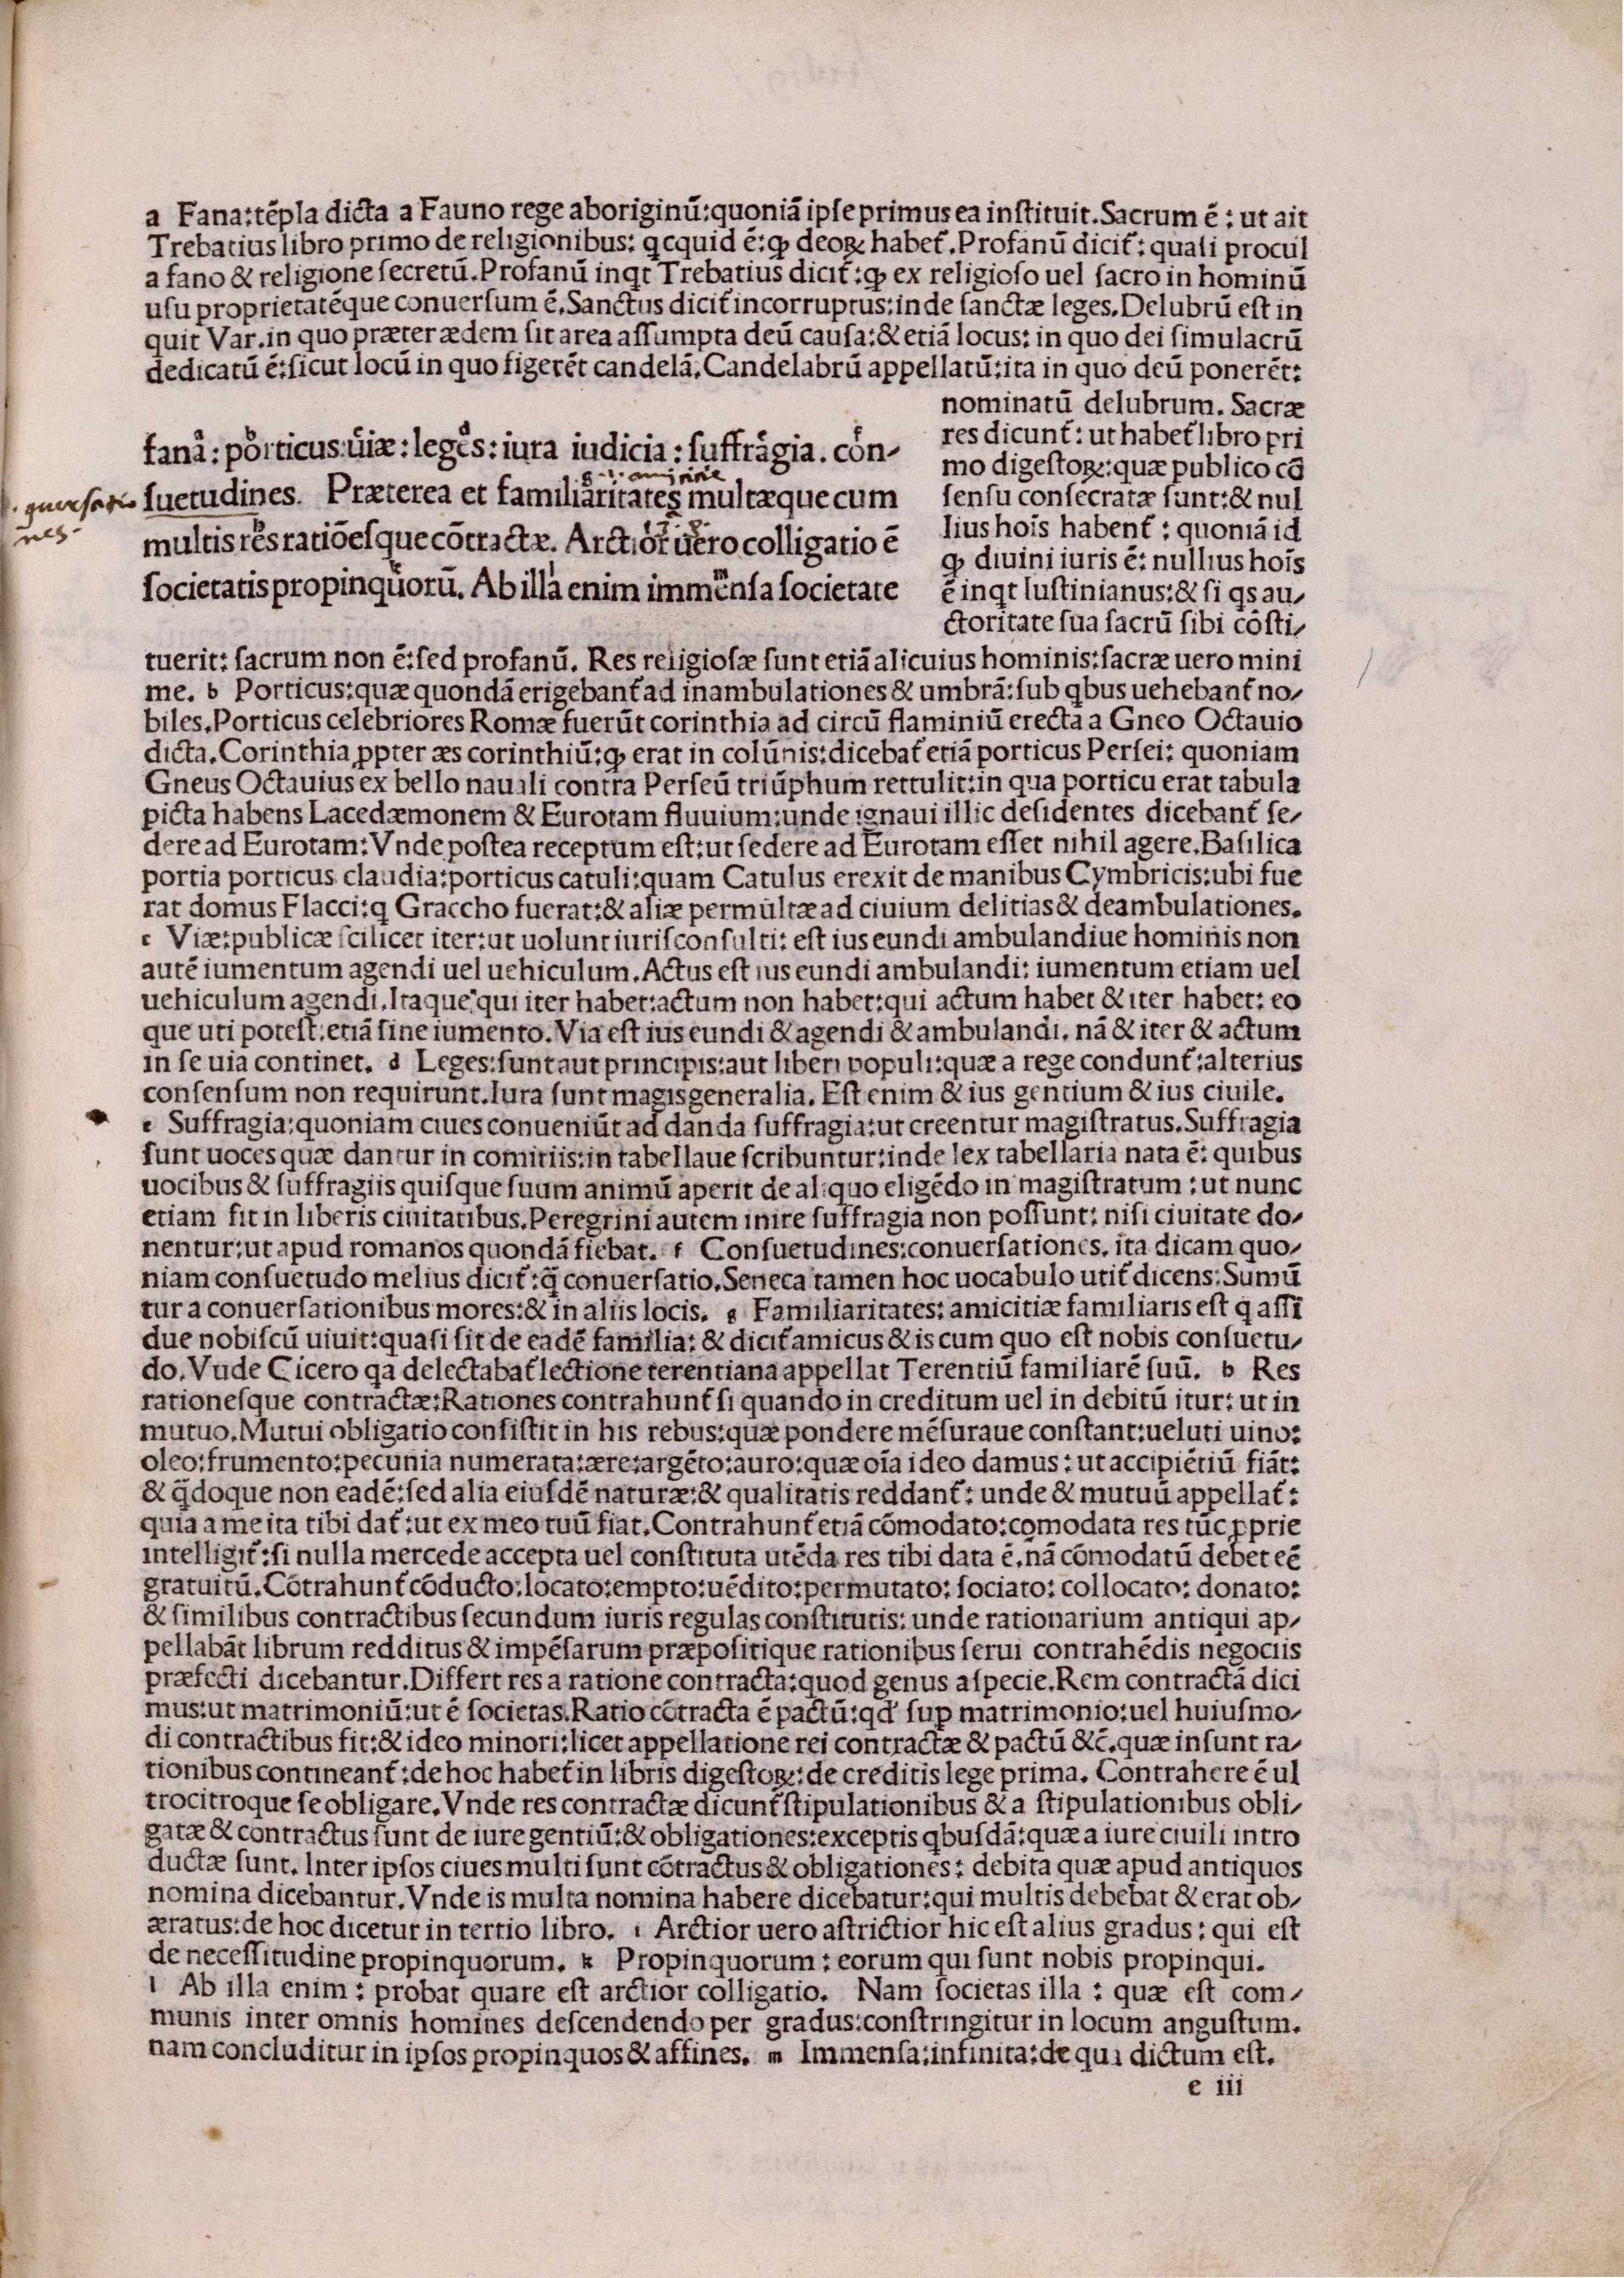 a Fana:tēpla dicta a Fauno rege aboriginū:quoniā ipſe primus ea inſtituit.Sacrum ē: ut ait
Trebatius libro primo de religionibus: qcquid ē:ꝙ deoꝝ habet᷑.Profanū dicit᷑: quaſi procul
a fano & religione ſecretū.Profanū inqt Trebatius dicit᷑:ꝙ ex religioſo uel ſacro in hominū
uſu proprietatēque conuerſum ē.Sanctus dicit᷑ incorruptus:inde ſanctæ leges.Delubrū eſt in
quit Var.in quo præter ædem ſit area aſſumpta deū cauſa:& etiā locus: in quo dei ſimulacrū
dedicatū ē:ſicut locū in quo figerēt candelā.Candelabrū appellatū:ita in quo deū ponerēt:
nominatū delubrum. Sacræ
res dicunt᷑: ut habet᷑ libro pri
mo digeſtoꝝ:quæ publico cō
ſenſu conſecratæ ſunt:& nul
lius hoīs habent᷑: quoniā id
ꝙ diuini iuris ē: nullius hoīs
ē inqt Iuſtinianus:& ſi qs au/
ctoritate ſua ſacrū ſibi cōſti/
fana: porticus:uiæ: leges: iura iudicia: ſuffragia. con/
ſuetudines. Præterea et familiaritates multæque cum
multis res ratiōeſque cōtractæ. Arctior uero colligatio ē
ſocietatis propinquorū. Ab illa enim immenſa ſocietate
tuerit: ſacrum non ē:ſed profanū. Res religioſæ ſunt etiā alicuius hominis:ſacræ uero mini
me. b Porticus:quæ quondā erigebant᷑ ad inambulationes & umbrā:ſub qbus uehebant᷑ no/
biles.Porticus celebriores Romæ fuerūt corinthia ad circū flaminiū erecta a Gneo Octauio
dicta.Corinthia ꝓpter æs corinthiū:ꝙ erat in colūnis:dicebat᷑ etiā porticus Perſei: quoniam
Gneus Octauius ex bello nauali contra Perſeū triūphum rettulit:in qua porticu erat tabula
picta habens Lacedæmonem & Eurotam fluuium:unde ignaui illic deſidentes dicebant᷑ ſe/
dere ad Eurotam:Vnde poſtea receptum eſt:ut ſedere ad Eurotam eſſet nihil agere.Baſilica
portia porticus claudia:porticus catuli:quam Catulus erexit de manibus Cymbricis:ubi fue
rat domus Flacci:q Graccho fuerat:& aliæ permultæ ad ciuium delitias & deambulationes.
c Viæ:publicæ ſcilicet iter:ut uolunt iuriſconſulti: eſt ius eundi ambulandiue hominis non
autē iumentum agendi uel uehiculum.Actus eſt ius eundi ambulandi: iumentum etiam uel
uehiculum agendi.Itaque qui iter habet:actum non habet:qui actum habet & iter habet: eo
que uti poteſt:etiā ſine iumento.Via eſt ius eundi & agendi & ambulandi. nā & iter & actum
in ſe uia continet. d Leges:ſunt aut principis:aut liberi populi:quæ a rege condunt᷑:alterius
conſenſum non requirunt.Iura ſunt magis generalia. Eſt enim & ius gentium & ius ciuile.
e Suffragia:quoniam ciues conueniūt ad danda ſuffragia:ut creentur magiſtratus.Suffragia
ſunt uoces quæ dantur in comitiis:in tabellaue ſcribuntur:inde lex tabellaria nata ē: quibus
uocibus & ſuffragiis quiſque ſuum animū aperit de aliquo eligēdo in magiſtratum: ut nunc
etiam fit in liberis ciuitatibus.Peregrini autem inire ſuffragia non poſſunt: niſi ciuitate do/
nentur:ut apud romanos quondā fiebat. f Conſuetudines:conuerſationes. ita dicam quo/
niam conſuetudo melius dicit᷑:q̄ conuerſatio.Seneca tamen hoc uocabulo utit᷑ dicens:Sumū
tur a conuerſationibus mores:& in aliis locis. g Familiaritates: amicitiæ familiaris eſt q aſſi
due nobiſcū uiuit:quaſi ſit de eadē familia: & dicit᷑ amicus & is cum quo eſt nobis conſuetu/
do.Vnde Cicero qa delectabat᷑ lectione terentiana appellat Terentiū familiarē ſuū. h Res
rationeſque contractæ:Rationes contrahunt᷑ ſi quando in creditum uel in debitū itur: ut in
mutuo.Mutui obligatio conſiſtit in his rebus:quæ pondere mēſuraue conſtant:ueluti uino:
oleo:frumento:pecunia numerata:ære:argēto:auro:quæ oīa ideo damus: ut accipiētiū fiāt:
& q̄doque non eadē:ſed alia eiuſdē naturæ:& qualitatis reddant᷑: unde & mutuū appellat᷑:
quia a me ita tibi dat᷑:ut ex meo tuū fiat.Contrahunt᷑ etiā cōmodato:comodata res tūc ꝓprie
intelligit᷑:ſi nulla mercede accepta uel conſtituta utēda res tibi data ē.nā cōmodatū debet eē
gratuitū.Cōtrahunt᷑ cōducto:locato:empto:uēdito:permutato: ſociato: collocato: donato:
& ſimilibus contractibus ſecundum iuris regulas conſtitutis: unde rationarium antiqui ap/
pellabāt librum redditus & impēſarum præpoſitique rationibus ſerui contrahēdis negociis
præfecti dicebantur.Differt res a ratione contracta:quod genus a ſpecie.Rem contractā dici
mus:ut matrimoniū:ut ē ſocietas.Ratio cōtracta ē pactū:qd' suꝑ matrimonio:uel huiuſmo/
di contractibus fit:& ideo minori:licet appellatione rei contractæ & pactū &c̄.quæ inſunt ra/
tionibus contineant᷑:de hoc habet᷑ in libris digeſtoꝝ:de creditis lege prima. Contrahere ē ul
trocitroque ſe obligare.Vnde res contractæ dicunt᷑ ſtipulationibus & a ſtipulationibus obli/
gatæ & contractus ſunt de iure gentiū:& obligationes:exceptis qbuſdā:quæ a iure ciuili intro
ductæ ſunt. Inter ipſos ciues multi ſunt cōtractus & obligationes: debita quæ apud antiquos
nomina dicebantur.Vnde is multa nomina habere dicebatur:qui multis debebat & erat ob/
æratus:de hoc dicetur in tertio libro. i Arctior uero aſtrictior hic eſt alius gradus: qui eſt
de neceſſitudine propinquorum. k Propinquorum: eorum qui ſunt nobis propinqui.
l Ab illa enim: probat quare eſt arctior colligatio. Nam ſocietas illa: quæ eſt com/
munis inter omnis homines deſcendendo per gradus:conſtringitur in locum anguſtum.
nam concluditur in ipſos propinquos & affines. m Immenſa:infinita:de qua dictum eſt.
e iii